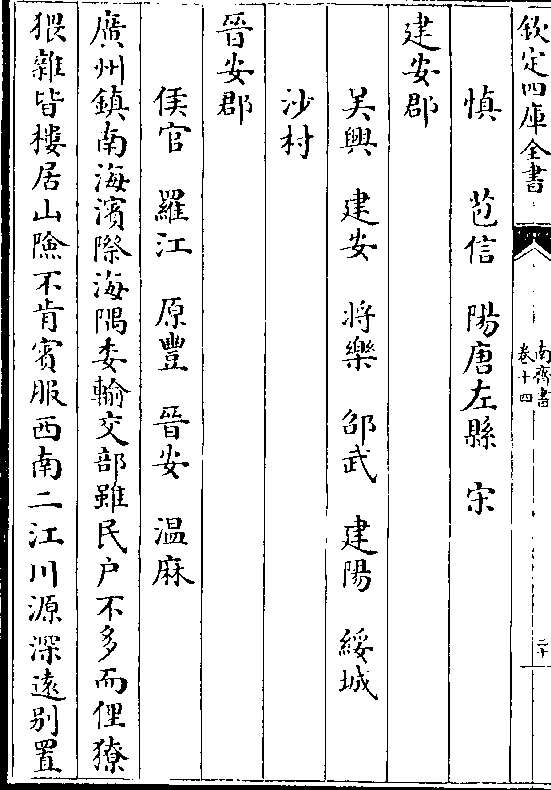 欽定四庫全書
南齊書
卷十四
二十
慎　苞信　陽唐左縣　宋
建安郡
吴興　建安　将樂　邵武　建陽　綏城
沙村
晉安郡
侯官　羅江　原豐　晉安　温麻
廣州鎮南海濱際海隅委輸交部雖民户不多而俚獠
猥雜皆樓居山險不肯賓服西南二江川源深遠别置